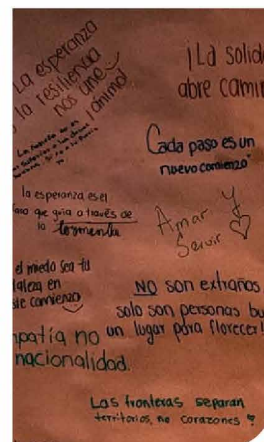 La esperanza
y la resiliencia
nos une
¡ánimo!
¡La solid
abre cami
Cada paso es un
nuevo comienzo
la esperanza es el
faro que guía a través de
la tormenta
Amar Y
Servir
el miedo sea tu
taleza en
ste comienzo
NO son extraños
solo son personas bu
un lugar para florecer!
patía no
nacionalidad.
Las fronteras separan
territorios, no corazones